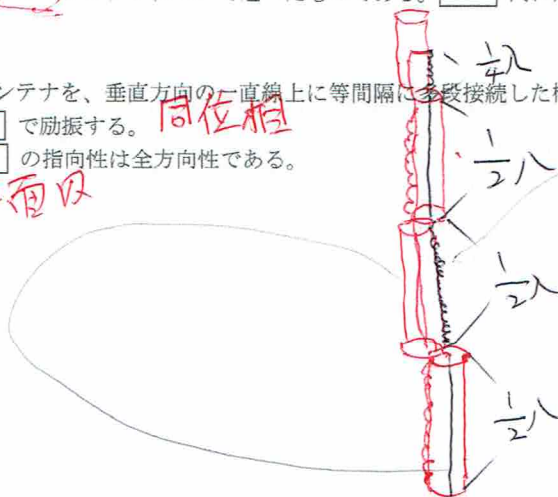 ンテナを、垂直方向の一直線上に等間隔に多段接続した
で励振する。 同位相
の指向性は全方向性である。
面内
1/4 λ
1/2 λ
1/2 λ
1/2 λ